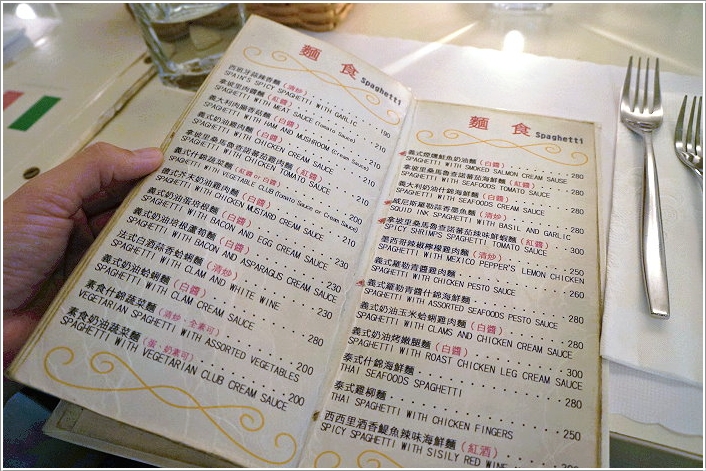 麵 食 Spaghetti
西班牙蒜辣香麵(清炒)
SPAIN'S SPICY SPAGHETTI WITH GARLIC 190
拿坡里肉醬麵(紅醬)
SPAGHETTI WITH MEAT SAUCE (Tomato Sauce) 210
義大利肉腸香菇麵(白醬)
SPAGHETTI WITH HAM AND MUSHROOM (Cream Sauce) 210
義式奶油雞肉麵(白醬)
SPAGHETTI WITH CHICKEN CREAM SAUCE 210
拿坡里桑馬魯查諾蕃茄雞肉麵(紅醬)
SPAGHETTI WITH CHICKEN TOMATO SAUCE 210
義式什錦蔬菜麵(紅醬or白醬)
SPAGHETTI WITH VEGETABLE CLUB (Tomato Sauce or Cream Sauce) 200
德式芥末奶油雞肉麵(白醬)
SPAGHETTI WITH CHICKEN MUSTARD CREAM SAUCE 210
義式奶油蛋培根麵(白醬)
SPAGHETTI WITH BACON AND EGG CREAM SAUCE 230
義式奶油培根蘆筍麵(白醬)
SPAGHETTI WITH BACON AND ASPARAGUS CREAM SAUCE 230
法式白酒蒜香蛤蜊麵(清炒)
SPAGHETTI WITH CLAM AND WHITE WINE 230
義式奶油蛤蜊麵(白醬)
SPAGHETTI WITH CLAM CREAM SAUCE 230
素食什錦蔬菜麵(清炒、全素可)
VEGETARIAN SPAGHETTI WITH ASSORTED VEGETABLES 200
素食奶油蔬菜麵(蛋、奶素可)
SPAGHETTI WITH VEGETARIAN CLUB CREAM SAUCE 200
麵 食 Spaghetti
義式煙燻鮭魚奶油麵(白醬)
SPAGHETTI WITH SMOKED SALMON CREAM SAUCE 280
拿坡里桑馬魯查諾蕃茄海鮮麵(紅醬)
SPAGHETTI WITH SEAFOODS TOMATO SAUCE 280
義大利奶油什錦海鮮麵(白醬)
SPAGHETTI WITH SEAFOODS CREAM SAUCE 280
威尼斯羅勒蒜香墨魚麵(清炒)
SQUID INK SPAGHETTI WITH BASIL AND GARLIC 280
拿坡里桑馬魯查諾蕃茄辣味鮮蝦麵(紅醬)
SPICY SHRIMPS SPAGHETTI TOMATO SAUCE 280
墨西哥辣椒檸檬雞肉麵(清炒)
SPAGHETTI WITH MEXICO PEPPER'S LEMON CHICKEN 250
義式羅勒青醬雞肉麵
SPAGHETTI WITH CHICKEN PESTO SAUCE 260
義式羅勒青醬什錦海鮮麵
SPAGHETTI WITH ASSORTED SEAFOODS PESTO SAUCE 280
義式奶油玉米蛤蜊雞肉麵(白醬)
SPAGHETTI WITH CLAMS AND CHICKEN CREAM SAUCE 280
義式奶油烤嫩腿麵(白醬)
SPAGHETTI WITH ROAST CHICKEN LEG CREAM SAUCE 300
泰式什錦海鮮麵
THAI SEAFOODS SPAGHETTI 280
泰式雞柳麵
THAI SPAGHETTI WITH CHICKEN FINGERS 250
西西里酒香鯷魚辣味海鮮麵(紅酒)
SPICY SPAGHETTI WITH SISILY RED WINE 280